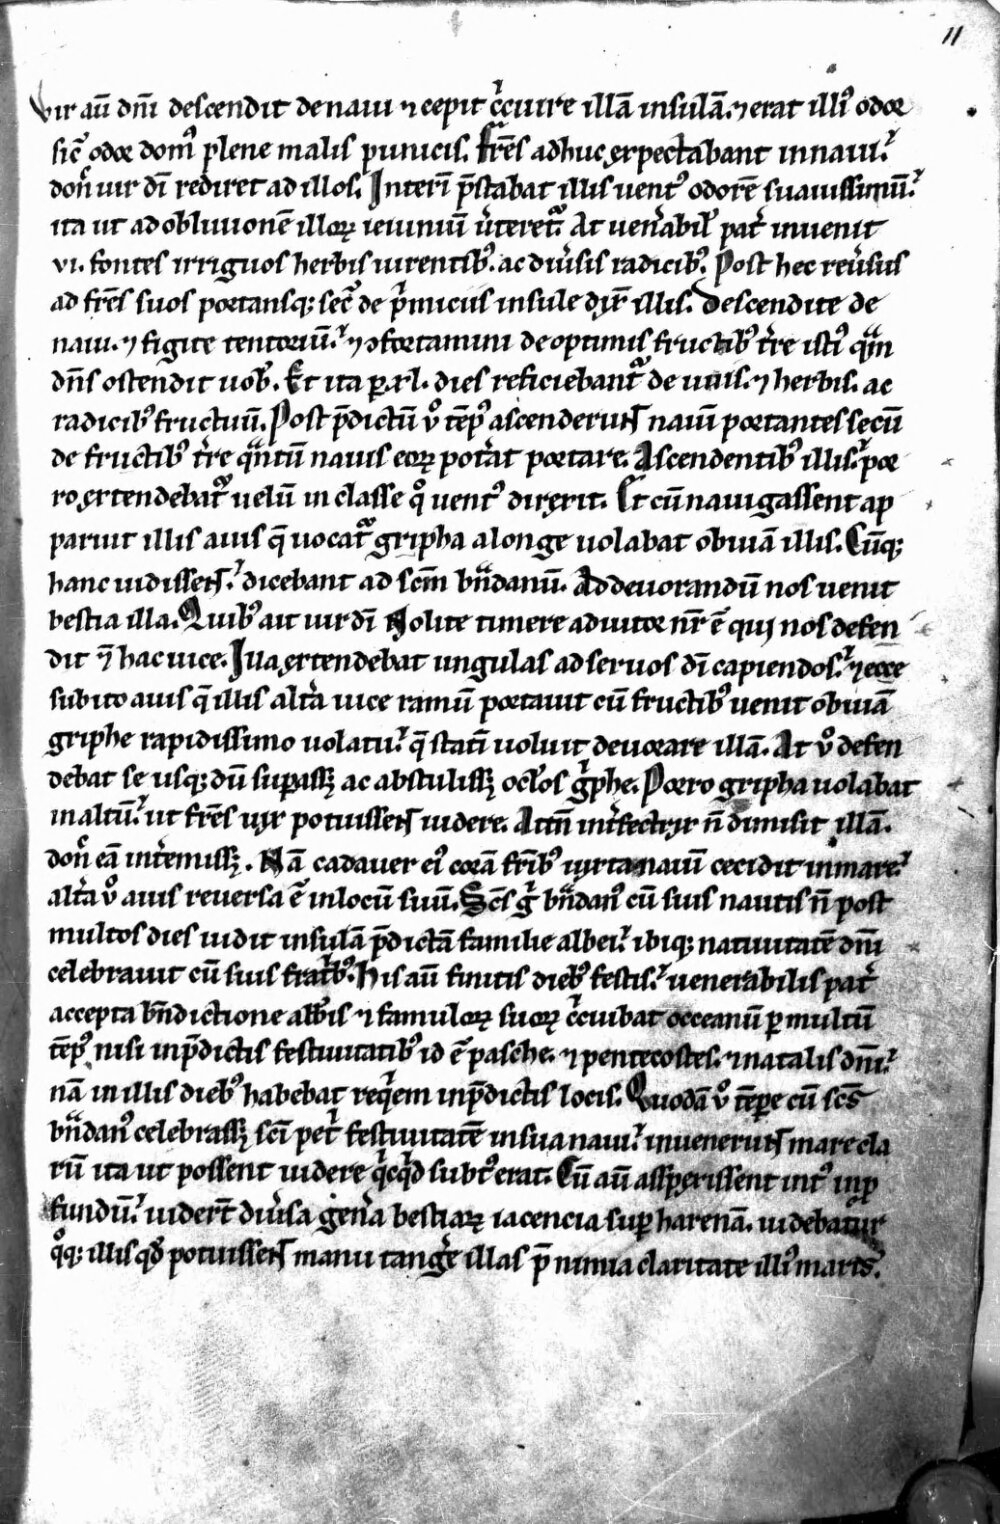 11
Vir aū dn̄i descendit de naui ⁊ cepit c̓cuire illā insulā. ⁊ erat illi᷒ odor
sic̄ odor dom᷒ plene malis punicis. Fr̄es adhuc expectabant in naui.
don̄ uir dī rediret ad illos. Interī p̄stabat illis uent᷒ odorē suauissimū.
ita ut ad obliuionē illoꝝ ieiuniū ūteret᷑. At uen̄abil̄ pat̄ inuenit
vi. fontes irriguos herbis uirentib᷒. ac diūsis radicib᷒. Post hec reūsus
ad fr̄es suos portansq; sec̄ de p̓miciis insule dix̄ illis. Descendite de
naui. ⁊ figite tentoriū. ⁊ ꝯfortamini de optimis fructib᷒ t̄re isti᷒ qm̄
dn̄s ostendit uob᷒. Et ita ꝑ .xl. dies reficiebant᷑ de uuis. ⁊ herbis. ac
radicib᷒ fructuū. Post p̄dictū v̊ tēp᷒ ascenderunt nauiū portantes secū
de fructib᷒ t̄re qͣntū nauis eoꝝ pot̄at portare. Ascendentib᷒ illis. por
ro, extendebat᷑ uelū in classe q̊ uent᷒ direxit. Et cū nauigassent ap
paruit illis auis q̄ uocat᷑ gripha alonge uolabat obuiā illis. Cūq;
hanc uidissent. dicebant ad sc̄m bn̄danū. Ad deuorandū nos uenit
bestia illa. Quib᷒ ait uir dī Nolite timere adiutor nr̄ ē qui nos defen
dit ⁊ hac uice. Illa extendebat ungulas ad seruos dī capiendos. ⁊ ecce
subito auis q̄ illis alt̄a uice ramū portauit cū fructib᷒ uenit obuiā
griphe rapidissimo uolatu. q̄ statī uoluit deuorare illā. At v̊ defen
debat se usq; dū suꝑassꝫ ac abstulissꝫ oc̄los g̓phe. Porro gripha uolabat
in altū. ut fr̄es uix potuissent uidere. Attn̄ int̄fectrix n̄ dimisit illā.
don̄ eā int̄emissꝫ. Nā cadauer ei᷒ corā fr̄ib᷒ iuxta nauiū cecidit in mare.
alt̄a v̊ auis reuersa ē in locū suū. Sc̄s g̓ bn̄dan᷒ cū suis nautis n̄ post
multos dies uidit insulā p̄dictā familie albei. ibiq; natiuitatē dn̄i
celebrauit cū suis frat̄b᷒. His aū finitis dieb᷒ festis. uenerabilis pat̄
accepta bn̄dictione abb̄is ⁊ famuloꝝ suoꝝ c̓cuibat occeanū ꝑ multū
tēp᷒, nisi in p̄dictis festiuitatib᷒ id ē pasche. ⁊ pentecostes. ⁊ natalis dn̄i.
nā in illis dieb᷒ habebat req̓em in p̄dictis locis. Quodā v̊ tēꝑe cū sc̄s
bn̄dan᷒ celebrassꝫ sc̄i pet̓ festiuitatē in sua naui. inuenerunt mare cla
rū ita ut possent uidere q̓cq̓d subt᷒ erat. Cū aū asꝑxissent int᷒ in ꝓ
fundū. uider̄t diūsa gen̄a bestiaꝝ iacencia suꝑ harenā. uidebatur
q̊q; illis qd̄ potuissent manu tang̓e illas p̄ nimia claritate illi᷒ maris.